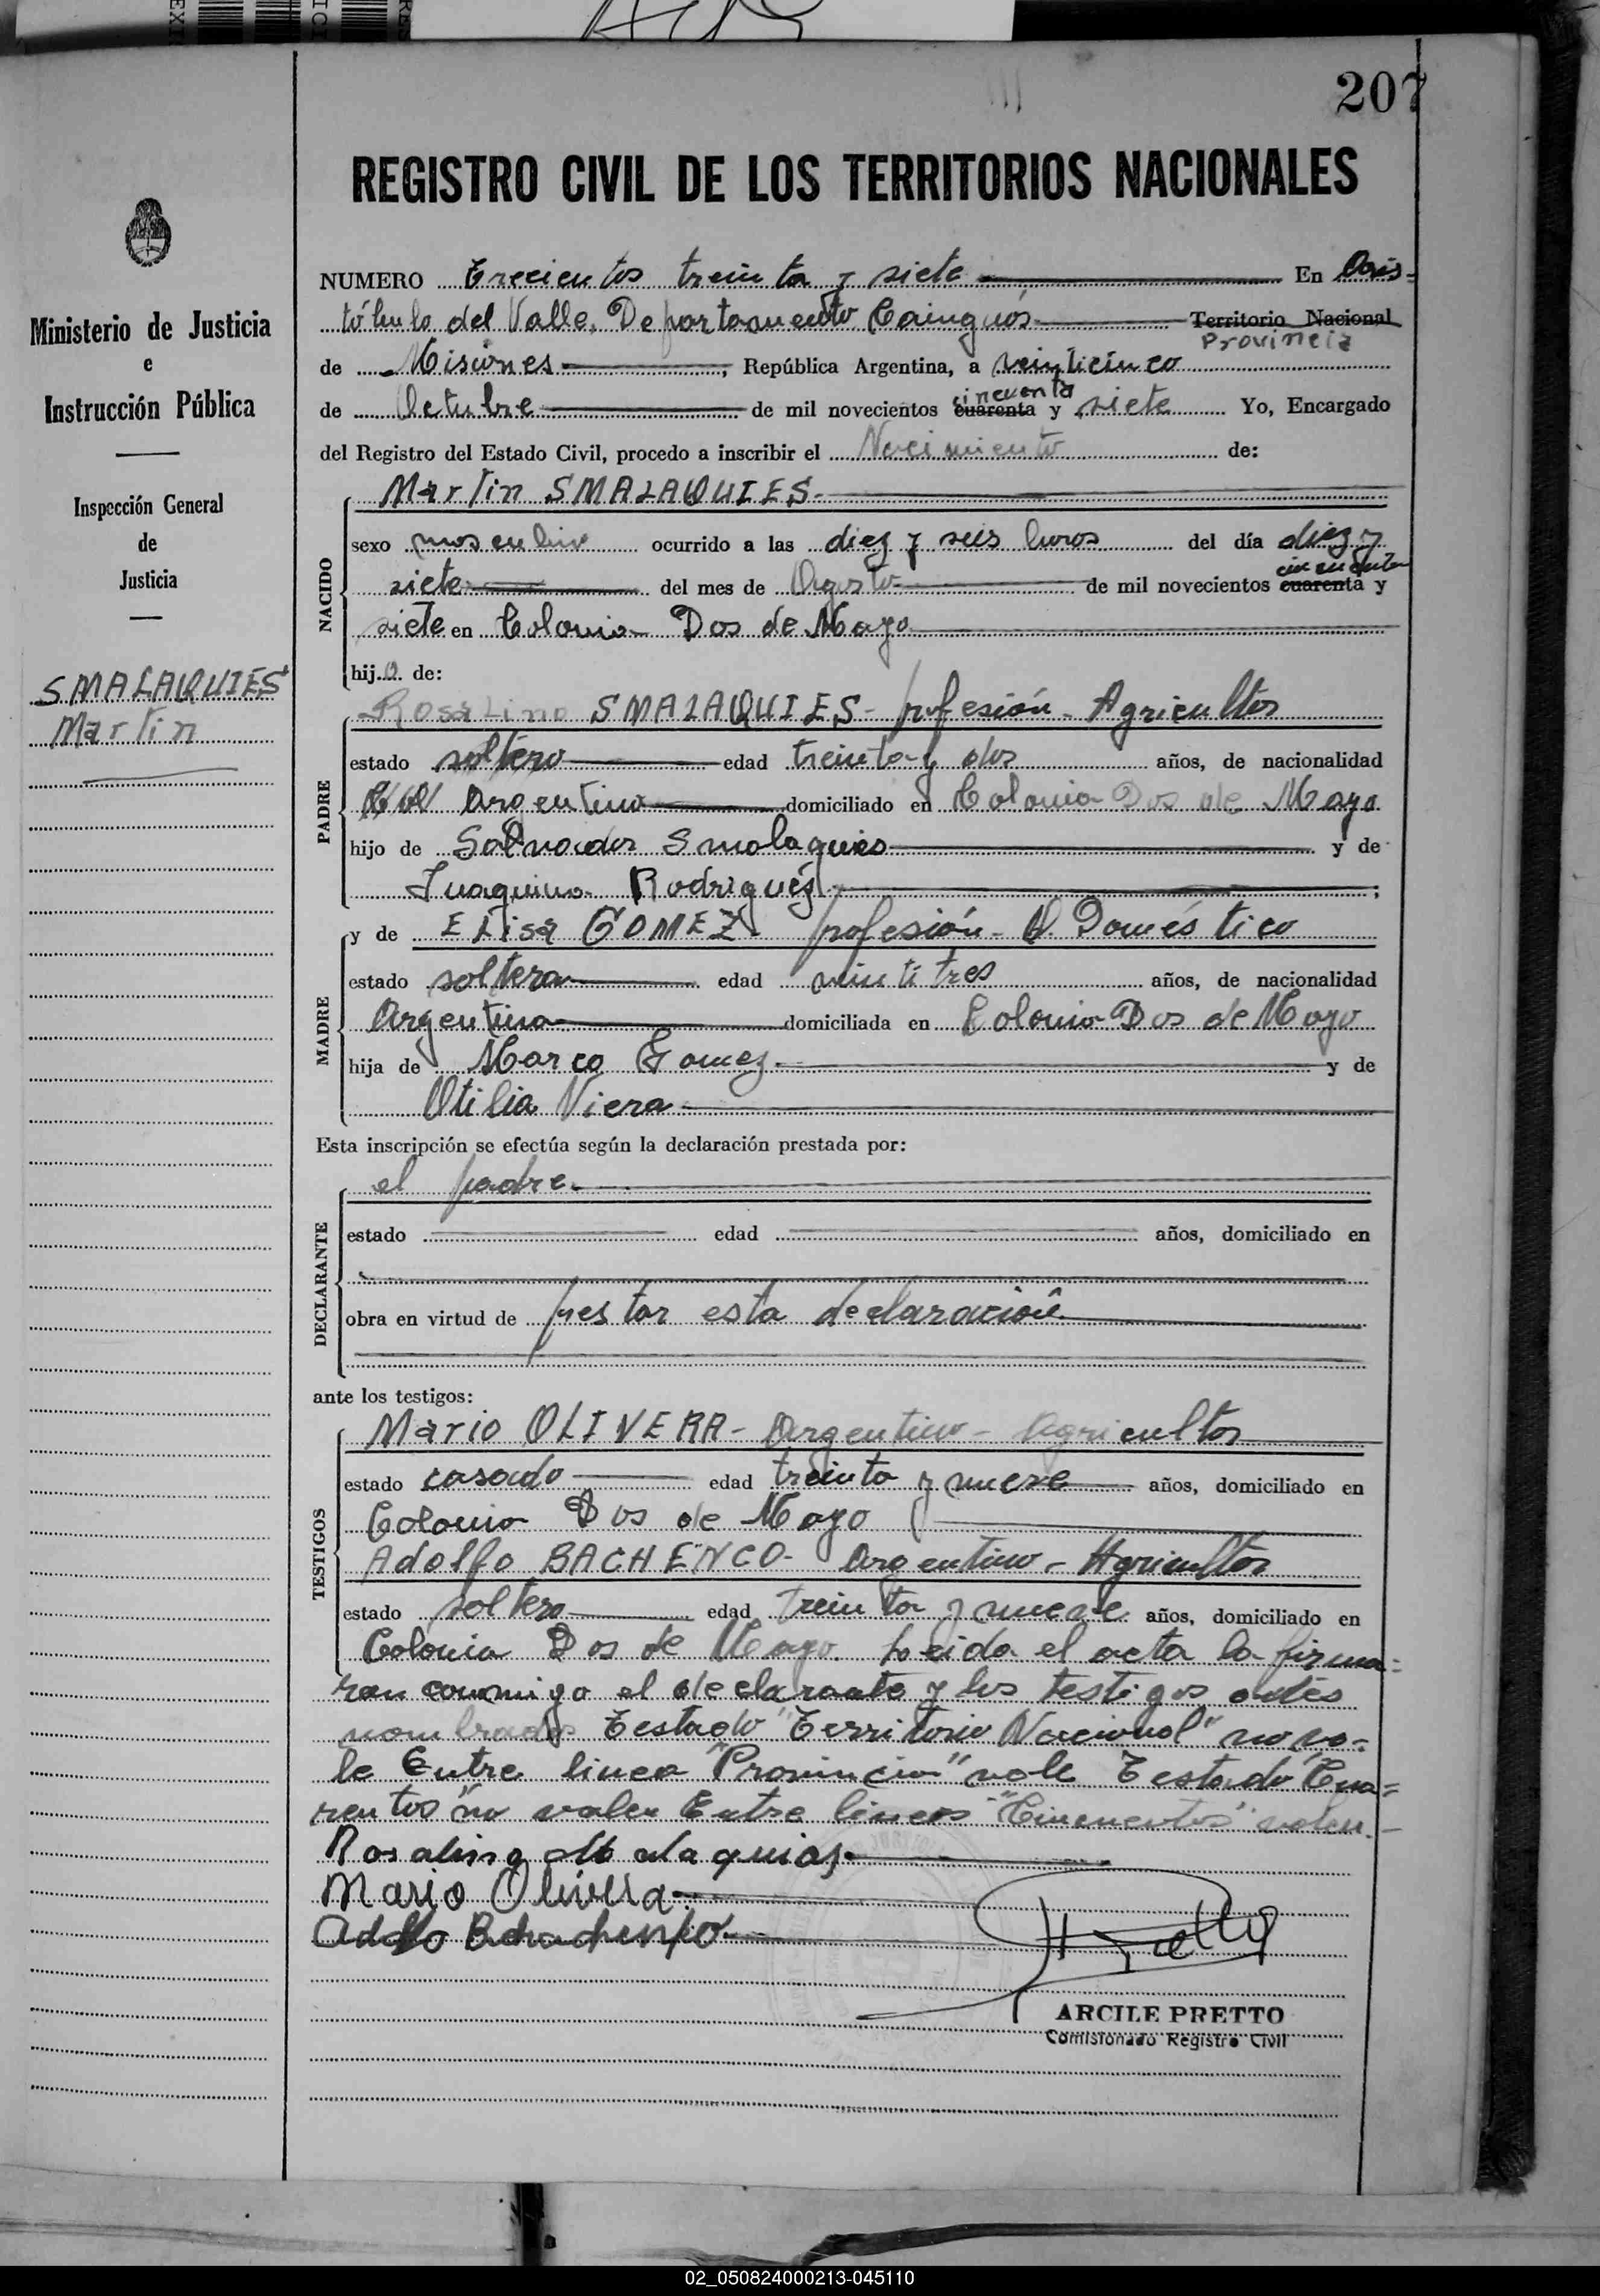 207
REGISTRO CIVIL DE LOS TERRITORIOS NACIONALES
Ministerio de Justicia
e
Instrucción Pública
Inspección General
de
Justicia
SMALAQUIES
Martin
NUMERO Trecientos treinta y siete En Aris-
tóbulo del Valle, Departamento Cainguás Territorio Nacional
Provincia
de Misiones, República Argentina, a veinticinco
cincuenta
de Octubre de mil novecientos cuarenta y siete Yo, Encargado
del Registro del Estado Civil, procedo a inscribir el Nacimiento de:
NACIDO
Martin SMALAQUIES.
sexo masculino ocurrido a las diez y seis horas del día diez y
cincuenta
siete del mes de Agosto de mil novecientos cuarenta y
siete en Colonia Dos de Mayo
hijo de:
PADRE
Rosalino SMALAQUIES- profesión- Agricultor
estado soltero edad treinta y dos años, de nacionalidad
Argentino domiciliado en Colonia Dos de Mayo
hijo de Salvador Smalaquies y de
Juaquina Rodrigués;
MADRE
y de Elisa GOMEZ. profesión- Q. Doméstico
estado soltera edad veintitres años, de nacionalidad
Argentina domiciliada en Colonia Dos de Mayo
hija de Marco Gomez. y de
Otilia Viera
Esta inscripción se efectúa según la declaración prestada por:
DECLARANTE
el padre.
estado edad años, domiciliado en
obra en virtud de prestar esta declaración.
ante los testigos:
TESTIGOS
Mario OLIVERA- Argentino- Agricultor
estado casado edad treinta y nueve años, domiciliado en
Colonia Dos de Mayo
Adolfo BACHENCO- Argentino- Agricultor
estado soltero edad treinta y nueve años, domiciliado en
Colonia Dos de Mayo. Leida el acta la firma-
ran conmigo el declarante y los testigos antes
nombrados Testado "Territorio Nacional" no va-
le Entre linea "Provincia" vale Testado "Cua-
rentas" no valen Entre lineas "Cincuentas" valen.-
Rosalino Malaquias
Mario Olivera
Adolfo Bachenko
ARCILE PRETTO
Comisionado Registro Civil
02_050824000213-045110